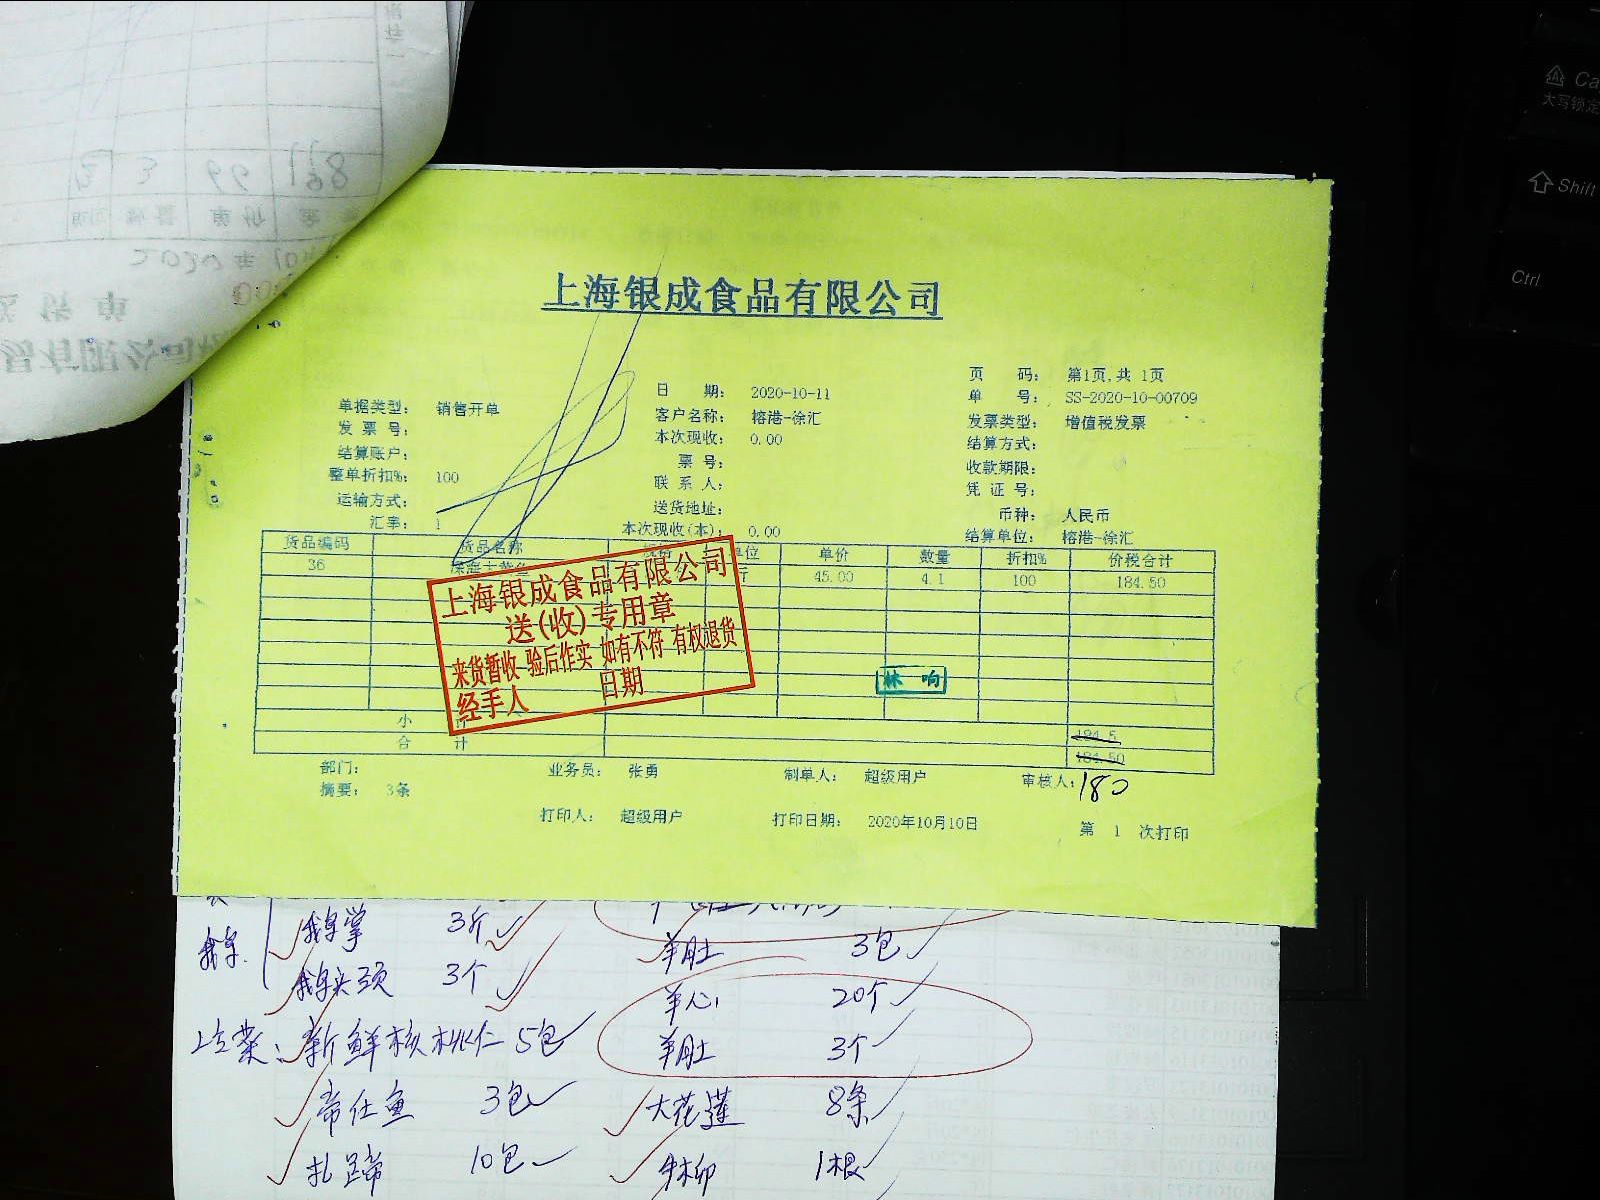 上海银成食品有限公司
页 码: 第1页,共 1页
日 期: 2020-10-11
单 号: SS-2020-10-00709
单据类型: 销售开单
客户名称: 榕港-徐汇
发票类型: 增值税发票
发 票 号:
本次现收: 0.00
结算方式:
结算账户:
票 号:
收款期限:
整单折扣%: 100
联 系 人:
凭 证 号:
运输方式:
送货地址:
币种: 人民币
汇率: 1
本次现收(本): 0.00
结算单位: 榕港-徐汇
货品编码 货品名称 单位 单价 数量 折扣% 价税合计
36 斤 45.00 4.1 100 184.50
上海银成食品有限公司
送(收)专用章
来货暂收 验后作实 如有不符 有权退货
经手人 日期
林 响
小 计 184.5
合 计 184.50
部门: 业务员: 张勇 制单人: 超级用户 审核人: 180
摘要: 3条
打印人: 超级用户 打印日期: 2020年10月10日 第 1 次打印
鹅掌 3斤
羊肚 3包
鹅头颈 3个
羊心 20个
新鲜核桃仁 5包
羊肚 3个
帝仕鱼 3包
大花莲 8条
扎蹄 10包
牛柳 1根
Shift
Ctrl
大写锁定